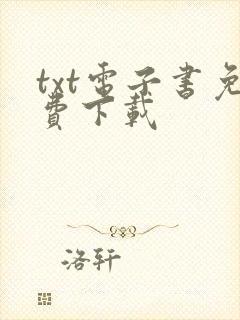 txt電子書免
費下載
洛轩